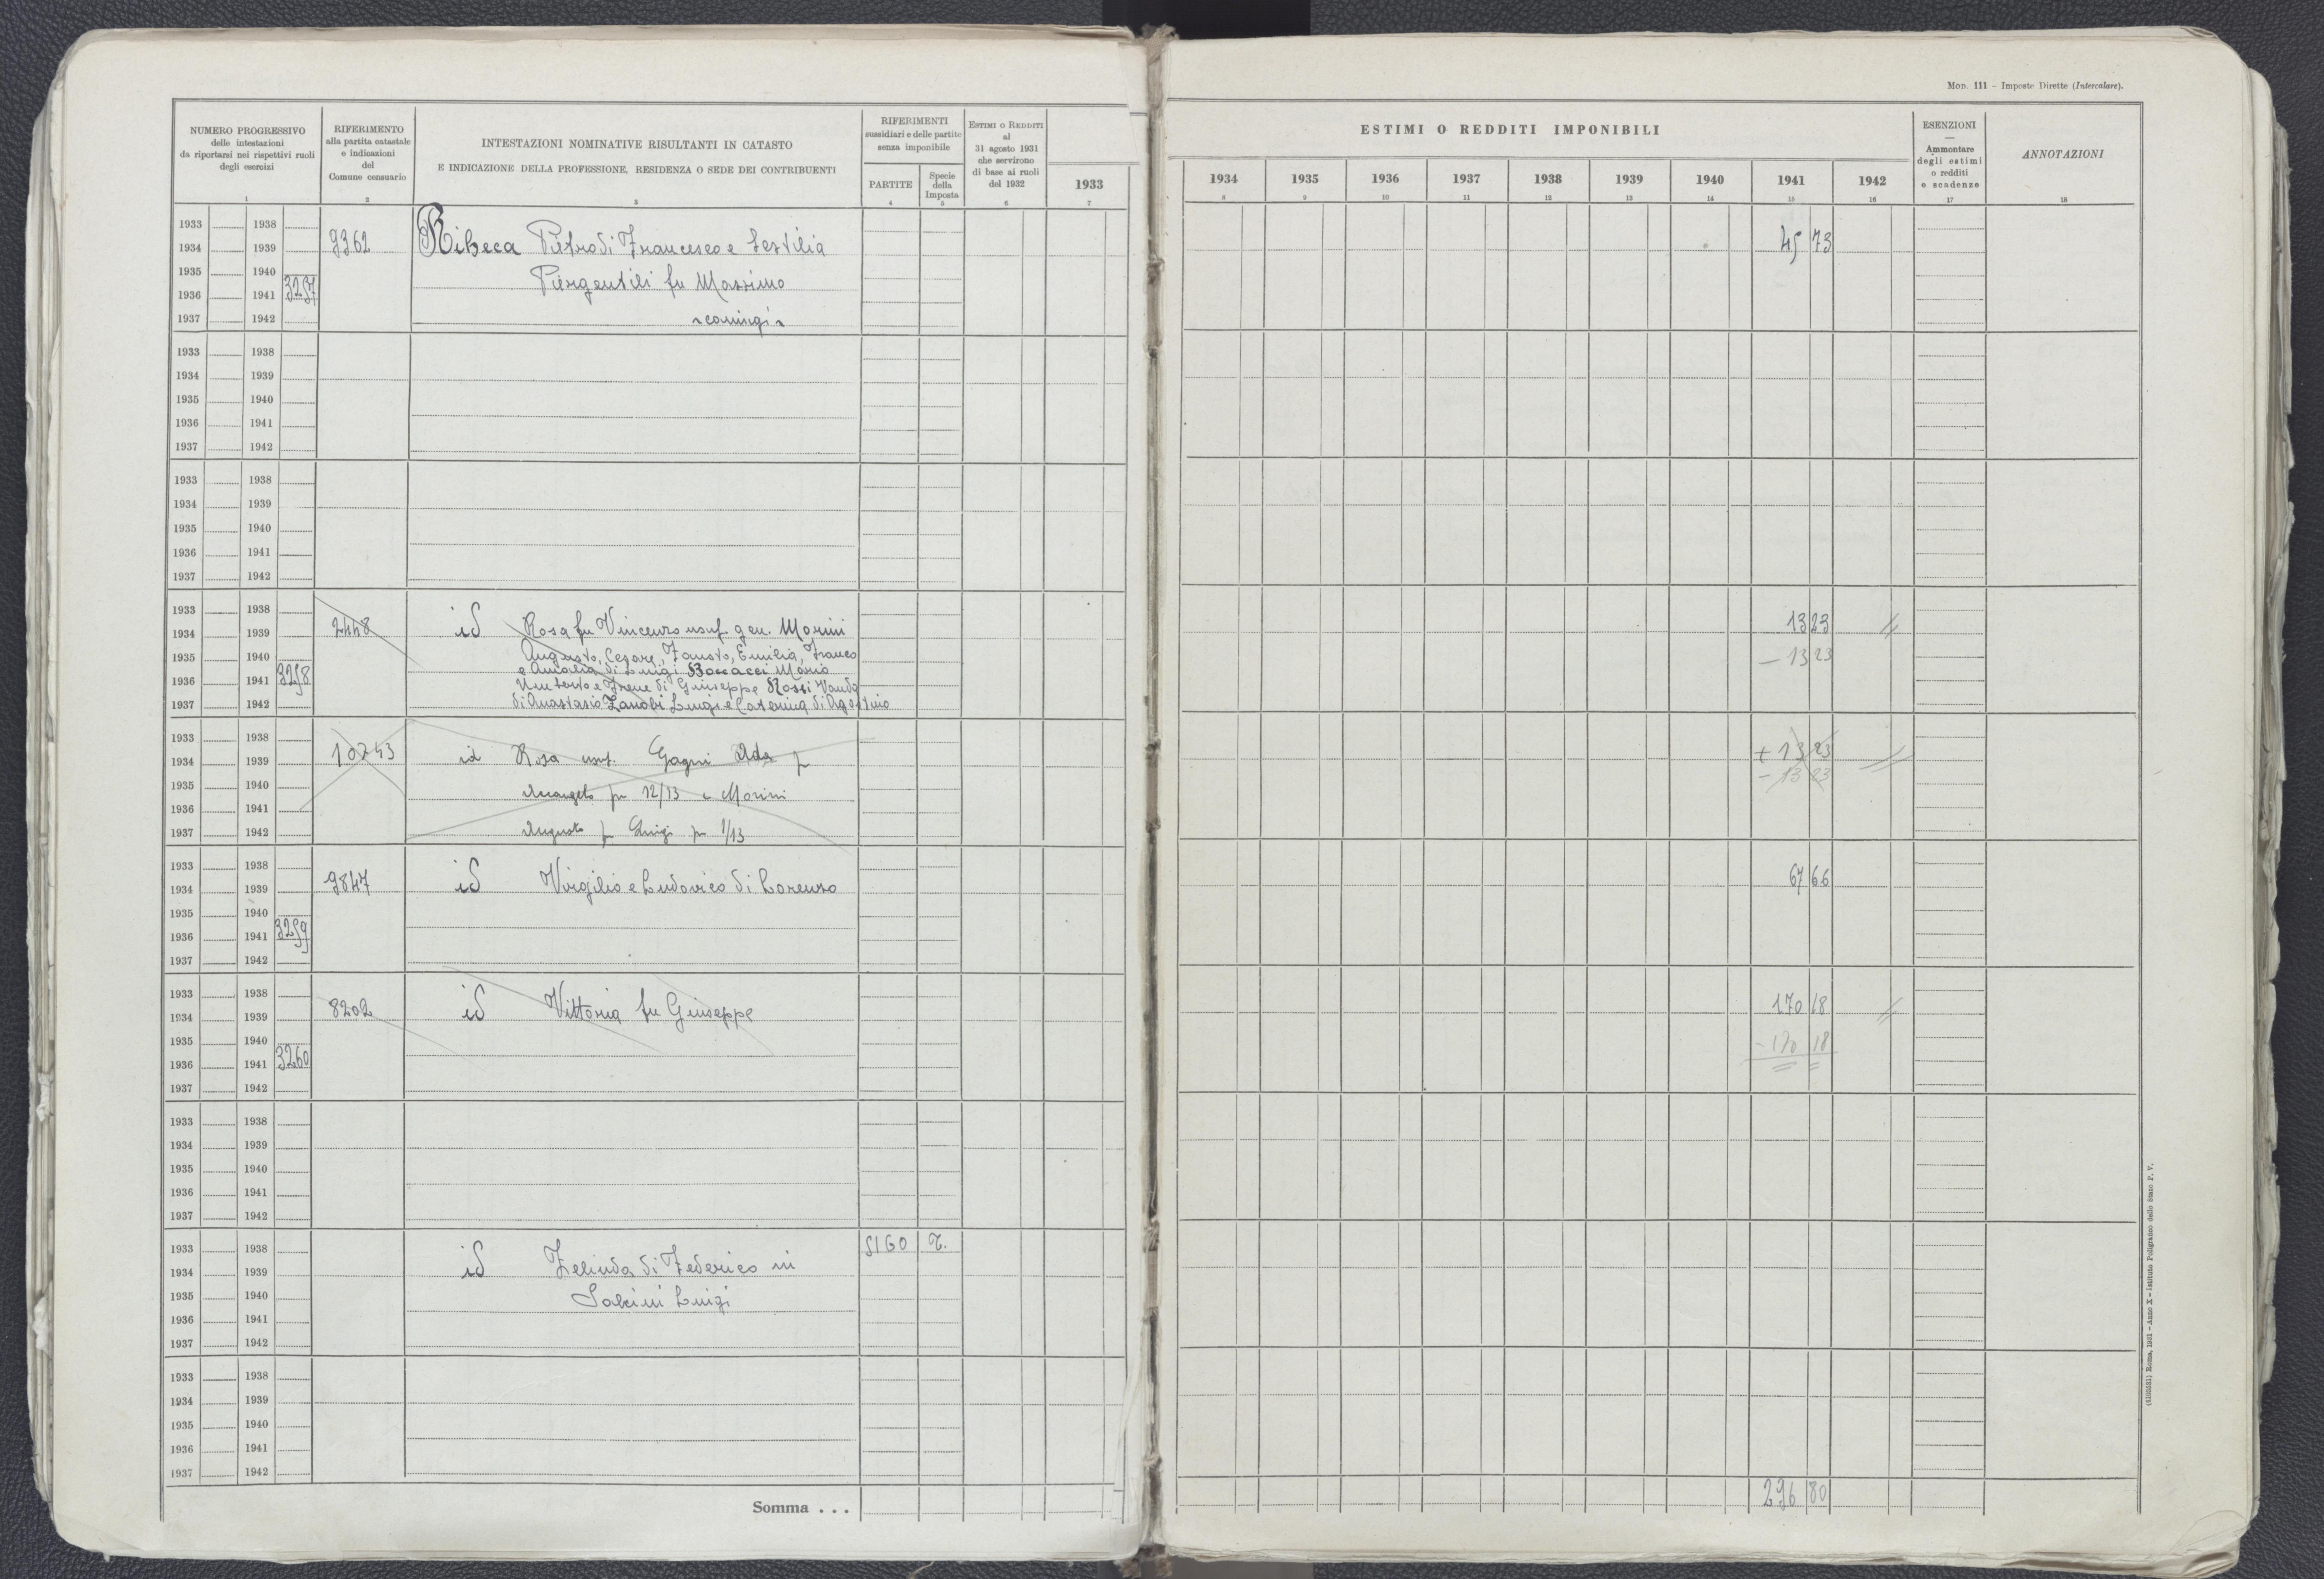 Mod. 111 – Imposte Dirette (Intercalare).
NUMERO PROGRESSIVO
delle intestazioni
da riportarsi nei rispettivi ruoli
degli esercizi
1
RIFERIMENTO
alla partita catastale
e indicazioni
del
Comune censuario
2
INTESTAZIONI NOMINATIVE RISULTANTI IN CATASTO
E INDICAZIONE DELLA PROFESSIONE, RESIDENZA O SEDE DEI CONTRIBUENTI
3
RIFERIMENTI
sussidiari e delle partite
senza imponibile
PARTITE
4
Specie
della
Imposta
5
Estimi o Redditi
al
31 agosto 1931
che servirono
di base ai ruoli
del 1932
6
1933
7
ESTIMI O REDDITI IMPONIBILI
1934 1935 1936 1937 1938 1939 1940 1941 1942
8 9 10 11 12 13 14 15 16
ESENZIONI
—
Ammontare
degli estimi
o redditi
e scadenze
17
ANNOTAZIONI
18
1933 1938
1934 1939 9362 Ribeca Pietro di Francesco e Sestilia 45 73
1935 1940 Piergentili fu Massimo
1936 1941 3257
1937 1942 coniugi
1933 1938
1934 1939
1935 1940
1936 1941
1937 1942
1933 1938
1934 1939
1935 1940
1936 1941
1937 1942
1933 1938
1934 1939 2448 id Rosa fu Vincenzo usuf. gen. Morini 13 23 //
1935 1940 Augusto, Cesare, Fausto, Emilia, Franco — 13 23
e Amalia di Luigi Boccacci Mario
1936 1941 3258 Umberto e Irene di Giuseppe Rossi Vanda
1937 1942 di Anastasio Zanobi Luigi e Caterina di Agostino
1933 1938
1934 1939 10743 id Rosa usuf. Gagni Ada fu + 13 23 //
1935 1940 Arcangelo per 12/13 e Morini – 13 23
1936 1941
1937 1942 Augusto fu Luigi per 1/13
1933 1938
1934 1939 9847 id Virgilio e Ludovico di Lorenzo 67 66
1935 1940
1936 1941 3259
1937 1942
1933 1938
1934 1939 8202 id Vittoria fu Giuseppe 170 18 //
1935 1940 – 170 18
1936 1941 3260
1937 1942
1933 1938
1934 1939
1935 1940
1936 1941
1937 1942
1933 1938 5160 T.
1934 1939 id Zelinda di Federico in
1935 1940 Sabini Luigi
1936 1941
1937 1942
1933 1938
1934 1939
1935 1940
1936 1941
1937 1942
Somma . . . 296 80
Roma, 1931 – Anno X – Istituto Poligrafico dello Stato P. V.